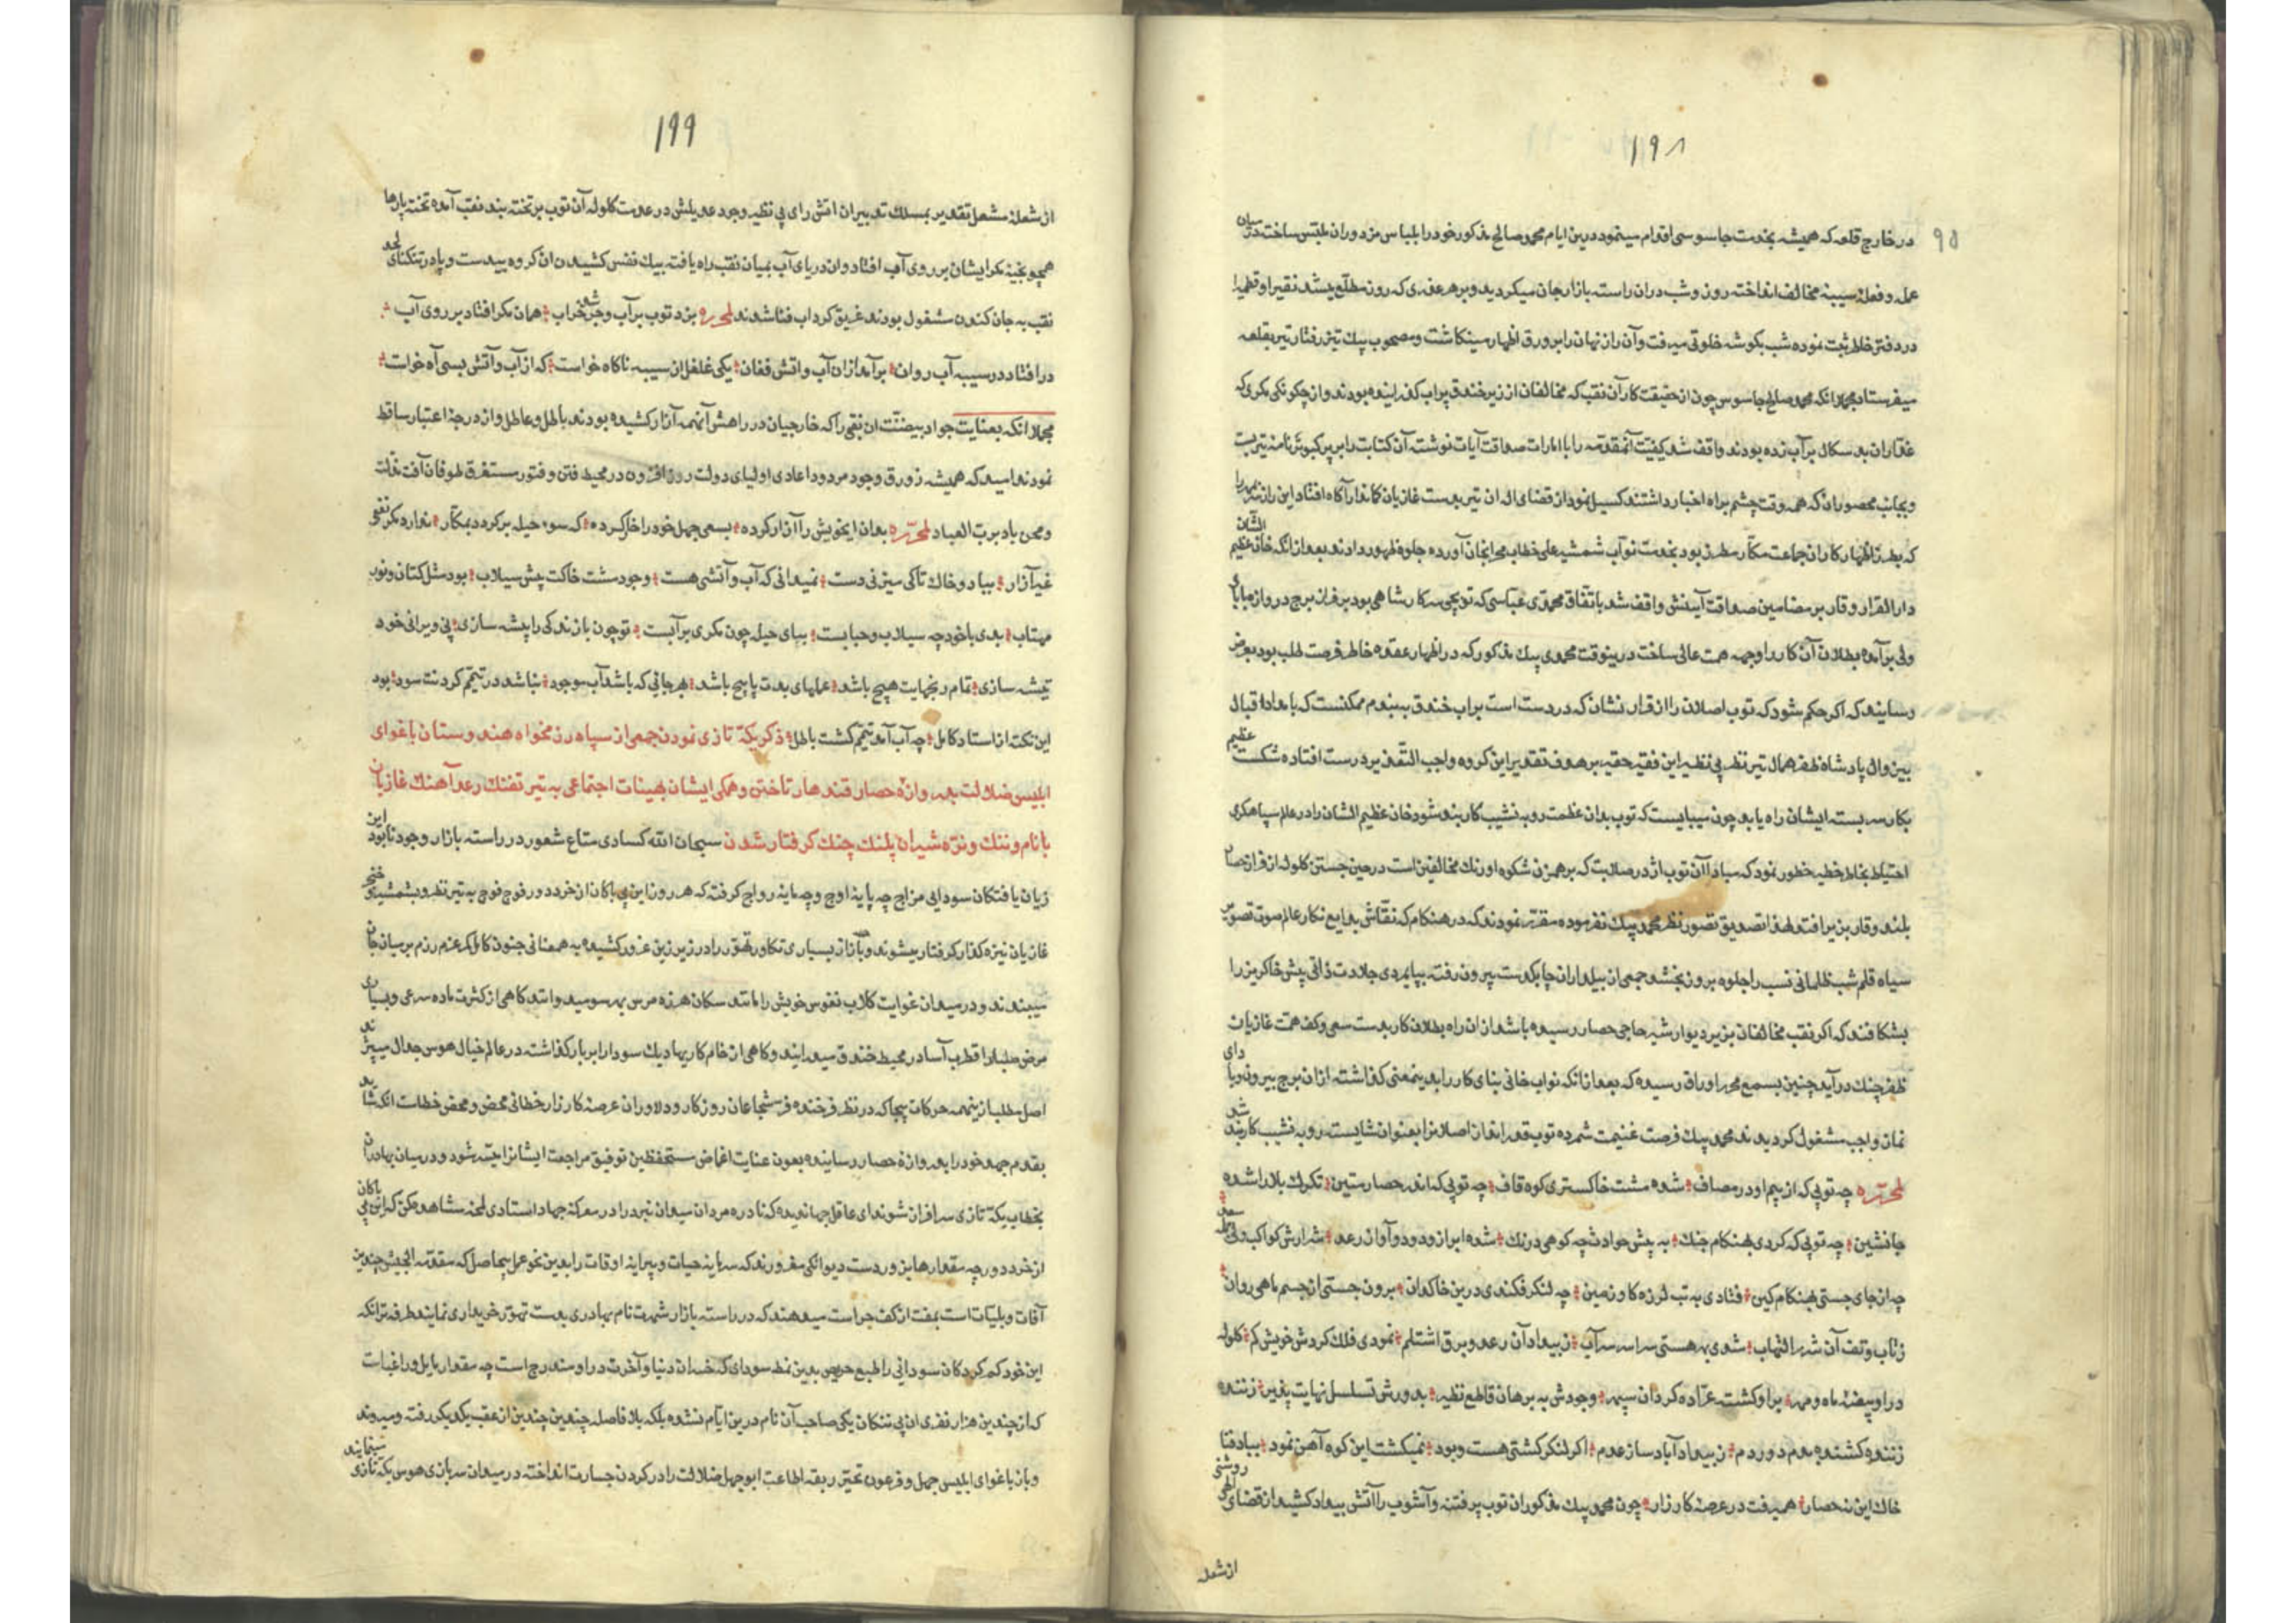 ۱۹۸
۹۵
در خارج قلعه که همیشه بخدمت جاسوسی اقدام مینمود درین ایام محمد صالح مذکور خود را بلباس مزدوران ملبس ساخته در میان
عمله و فعله سیبه مخالف انداخته روز و شب در ان راسته بازار جان میکردید و بر هر عقدی که روز مطلع میشد نقیر او قطمیرا
در دفتر خاطر ثبت نموده شب بکوشه خلوتی میرفت و آن راز نهان را بر ورق اظهار مینکاشت و مصحوب پیک تیز رفتار تیر بقلعه
میفرستاد مجملا انکه محمد صالح جاسوس چون از حقیقت کار آن نقب که مخالفان از زیر خندق پر اب کذرانیده بودند و از چکونکی مکری که
غداران بد سکال بر آب زده بودند واقف شد کیفیت آنمقدمه را با امارات صداقت آیات نوشته آن کتابت را بر پر کبوتر نامه تیر بست
و بجانب محصوران که همه وقت چشم براه اخبار داشتند کسیل نمود از قضای اله ان تیر بدست غازیان کاندار آکاه افتاد این راز
که بطرز اظهار کاران جماعت مکار مطرز بود بخدمت نوآب شمشیر علی خطاب محرابخان آورده جلوه ظهور دادند بعد از انکه خان عظیم الشان
دار القرار وقار بر مضامین صداقت آیینش واقف شد باتفاق محمدی عباسی که توپچی سرکار شاهی بود بر فراز برج دروازه بابا
ولی برآمده بطلان آن کار را وجهه همت عالی ساخت درینوقت محمدی بیک مذکور که در اظهار عقده خاطر فرصت طلب بود بعرض
رسانید که اکر حکم شود که توپ اصلان را از قرار نشان که در دست است بر اب خندق ببندم ممکنست که بامداد اقبال
بین وال پادشاه ظفر همال تیر نظر بی نظیر این فقیر حقیر بر هدف تقدیر این کروه واجب التقدیر درست افتاده شکست عظیم
بکار سر بسته ایشان راه یابد چون میبایست که توپ بدان عظمت رو به نشیب کار بند شود خان عظیم الشان را در عالم سپاهکری
احتیاط بخاطر خطیر خطور نمود که مبادا آن توپ اژدر صلابت که برهمزن شکوه اورنک مخالفین است در حین جستن کلوله از فراز حصار
بلند وقار بزیر افتد لهذا تصدیق تصور نظر محمد بیک نفرموده مقرر نمودند که در هنکام که نقاش بدایع نکار عالم صورت تصویر
سیاه قلم شب ظلمانی نسب را جلوه بروز بخشد جمعی از بیلداران چابکدست بیرون رفته بپایمردی جلادت ذاتی پیش خاکریز را
بشکافند که اکر نقب مخالفان بزیر دیوار شیر حاجی حصار رسیده باشد از ان راه بطلان کار بدست سعی و کف همت غازیان
ظفر چنک در آید چنین بسمع محرر اوراق رسیده که بعد از انکه نواب خانی بنای کار را بدینمعنی کذاشته از ان برج بیرون و بادای
نماز واجب مشغول کردیدند محمد بیک فرصت غنیمت شمرده توپ قدر انداز اصلان را بعنوان شایسته رو به نشیب کار بند شد
لمحرره چه توپی که از بیم او در مصاف شده مشت خاکستری کوه قاف چه توپی که اندر حصار متین تکرک بلا را شده
جانشین چه توپی که کردی بهنکام جنک به پیش حوادث چه کوهی درنک شده ابر از دود و آواز رعد شرارش کواکب ولی
چه از جای جستی بهنکام کین فتادی به تب لرزه کاو زمین چه لنکر فکندی درین خاکدان برون جستی از جسم ماهی روان
ز تاب و تف آن شرر التهاب شدی بهر هستی سراسر سراب ز بیداد آن رعد و برق اشتلم نمودی فلک کردش خویش کم کلوله
در او بیضهٔ ماه و مهر بر او کشته عراده کردان سپهر وجودش به برهان قاطع نظیر بدورش تسلسل نهایت پذیر زننده
زننده کشنده بدم دور دم ز بیداد آباد ساز عدم اکر لنکر کشتی هست و بود نمیکشت این کوه آهن نمود بباد فنا
خاک این نه حصار همیرفت در عرصهٔ کارزار چون محمد بیک مذکور ان توپ پر فتنه و آشوب را آتش بیداد کشید از قضای الهی روشنی
از شعله
۱۹۹
از شعلهٔ مشعل تقدیر بمسلک تدبیر ان اتش رای بی نظیر وجود عدیلش در عدمت کلوله آن توپ بر تخته بند نقب آمده تخته پارها
همچو بخیه مکر ایشان بر روی آب افتاد وان دریای آب بمیان نقب راه یافته بیک نفس کشیدن ان کروه بیدست و پا در تنکنای لحد
نقب به جان کندن مشغول بودند غریق کرداب فنا شدند لمحرره بزد توپ بر آب و جر شد خراب همان مکر افتاد بر روی آب
در افتاد در سیبه آب روان برآمد از ان آب و اتش فغان یکی غلغل از سیبه ناکاه خواست که از آب و آتش بسی آه خواست
مجملا انکه بعنایت جواد بیضنت ان نقبی را که خارجیان در راهش آنهمه آزار کشیده بودند باطل و عاطل و از درجهٔ اعتبار ساقط
نمودند امید که همیشه زورق وجود مردود اعادی اولیای دولت روز افزون در محیط فتن و فتور مستغرق طوفان آفت
و محن باد برب العباد لمحرره بدان ایخویش را آزار کرده بسعی جهل خود را خار کرده که سوء حیله بر کردد بمکار ندارد مکر نفعی
غیر آزار بباد و خاک تا کی میزنی دست نمیدانی که آب و آتشی هست وجود مشت خاکت پیش سیلاب بود مثل کتان و نور
مهتاب بدی با خود چه سیلاب و حبابست بپای حیله چون مکری بر آبست تو چون باز ندکی را پیشه سازی پی ویرانی خود
تیشه سازی تمام رنجهایت هیچ باشد عملهای بدت پا پیچ باشد بهر جائی که باشد آب موجود نباشد در تیمم کردنت سود بود
این نکته از استاد کامل چه آب آمد تیمم کشت باطل ذکر یکه تازی نمودن جمعی از سپاه رزمخواه هندوستان باغوای
ابلیس ضلالت بدروازهٔ حصار قندهار تاختن و همکی ایشان بهینات اجتماعی به تیر تفنک رعد آهنک غازیان
با نام و ننک و نره شیران پلنک چنک کرفتار شدن سبحان الله کسادی متاع شعور در راسته بازار وجود نابود این
زیان یافتکان سودایی مزاج چه پایه اوج و چه مایه رواج کرفته که هر روز این بی باکان از خرد دور فوج فوج به تیر نظر و بشمشیر و خنجر
غازیان نیزه کذار کرفتار میشوند و باز از بسیاری تکاور تهور را در زیر زین غرور کشیده به همعنانی جنون کامل کمر عزم رزم بر میان جان
میبندند و در میدان غوایت کلاب نفوس خویش را مانند سکان هرزه مرس بهر سو میدوانند کاهی از کثرت ماده سرعی و بسیاری
مرض جلباز اقطرب آسا در محیط خندق میدرایند و کاهی از خام کاریها دیک سودا را بر بار کذاشته در عالم خیال هوس جدال میپزند
اصل مطلب ازینهمه حرکات بیجا که در نظر فرخنده فر شجاعان روزکار و دلاوران عرصهٔ کارزار خطائی محض و محض خطاست انکه شاید
بقدم جهد خود را بدروازهٔ حصار رسانیده بعون عنایت اغماض مستحفظین توفیق مراجعت ایشانرا میسر شود و در میان بهادران
بخطاب یکه تازی سرافراز شوند ای عاقل جهاندیده که نادره مردان میدان نبرد را در معرکه جهاد استادی لحظه مشاهده کن که این بی باکان
از خرد دور چه مقدار هنرور دست دیوانکی مغرورند که سرمایه حیات و پیرایه اوقات را بدین نحو عمل بیحاصل که مقدمه الجیش چندین
آفات و بلیات است بمفت از کف جراست میدهند که در راسته بازار شهرت نام بهادری بدست تهور خریداری نمایند طرفه تر انکه
این خود کم کردکان سودائی را طبع حریص بدین نمط سودای که خسران دنیا و آخرت در او مندرج است چه مقدار مایل و راغبست
که از چندین هزار نفری ان بی ننکان یکی صاحب آن نام درین ایام نشده بلکه بلا فاصله چندین چندین از عقب یکدیکر رفته و میروند
و باز باغوای ابلیس جهل و فرعون تحیر ربقه اطاعت ابوجهل ضلالت را در کردن جسارت انداخته در میدان سربازی هوس یکه تازی مینمایند